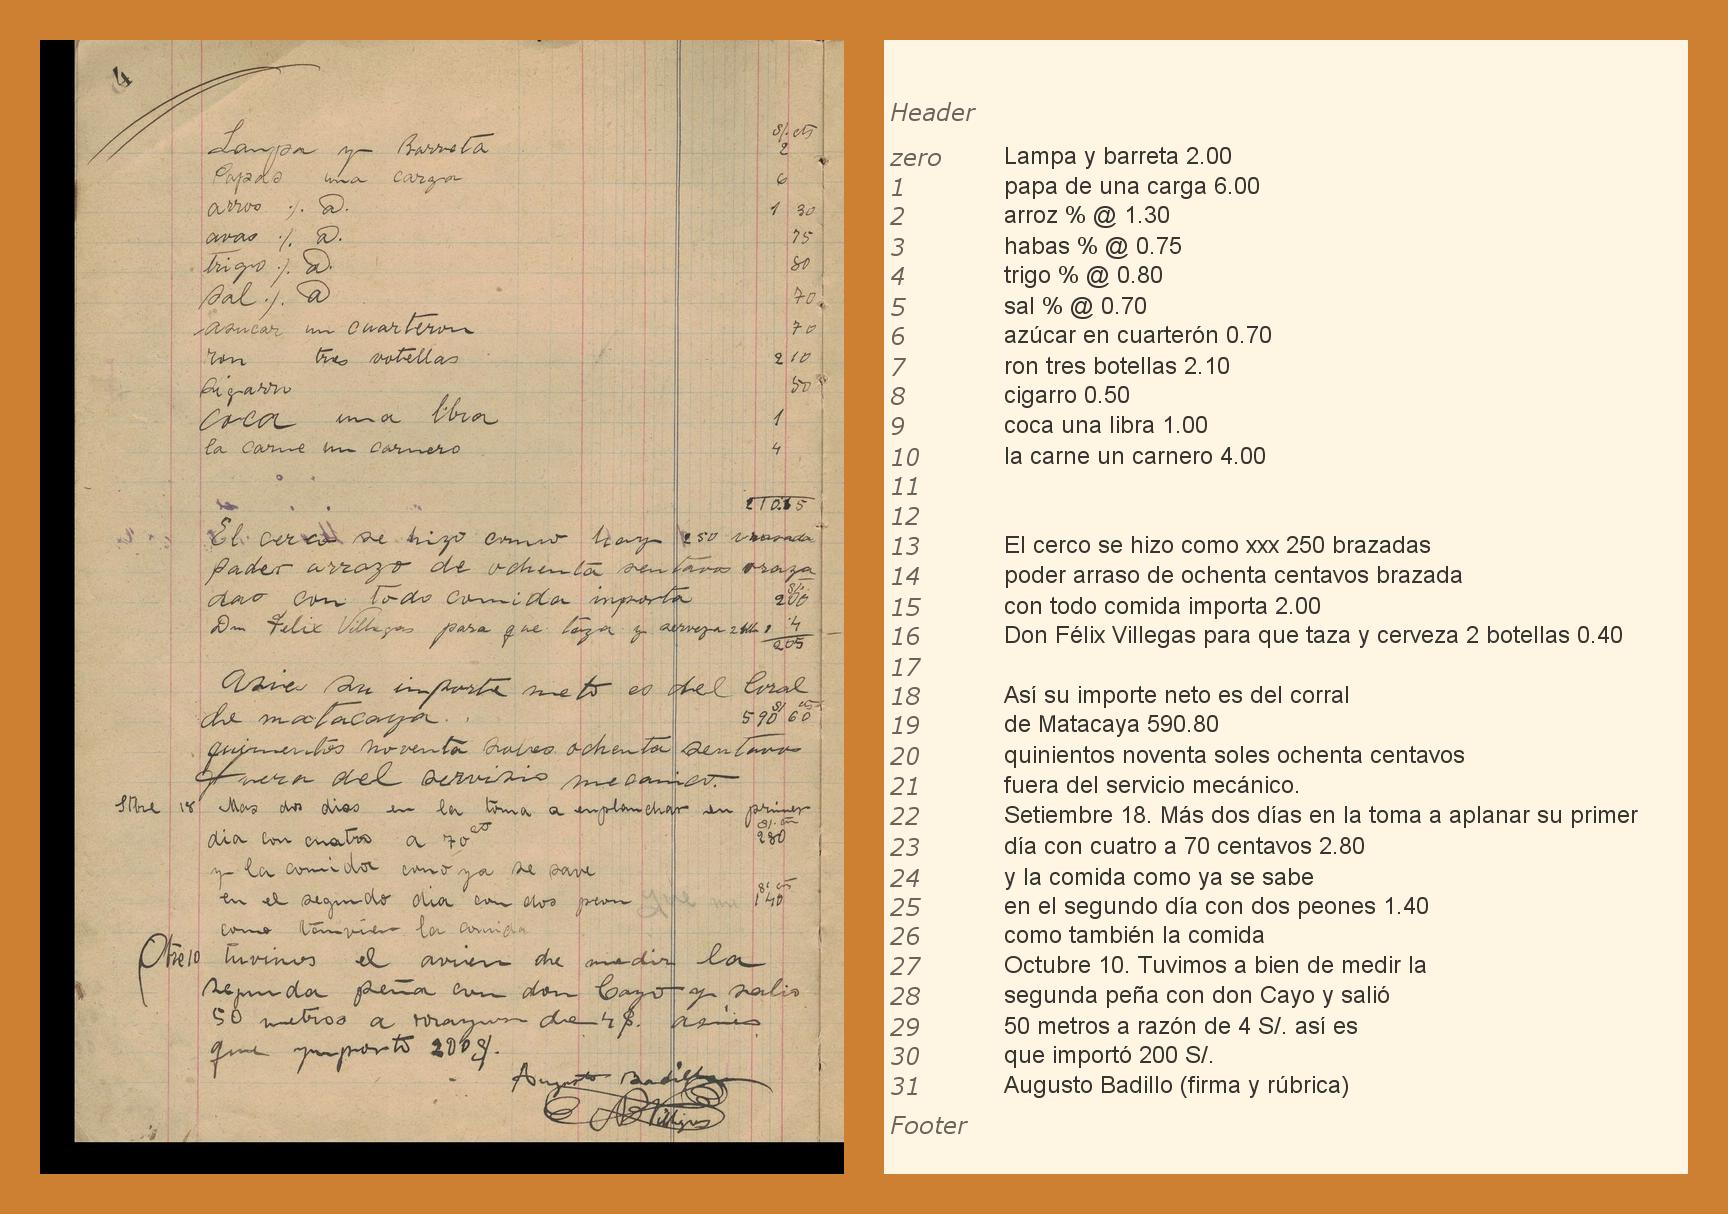 4
S/. cts
Lampa y Barreta 2
Papas una carga 6
arros ·/. @. 1 30
avas ·/. @. 75
trigo ·/. @. 80
sal ·/. @ 70
asucar un cuarteron 70
ron tres votellas 2 10
sigarro 50
coca una libra 1
la carne un carnero 4
El cerco se hizo como hay 250
pader arrazo de ochenta sentavos
dao con todo comida inporta 200
Don Felix Villegas para que taza y serveza 4
205
Asies su importe neto es del Coral
de matacaya. 590 60
quinientos noventa soles ochenta sentavos
fuera del servisio mecanico.
Stbre 18 Mas dos dias en la toma a enplanchar en primer
dia con cuatro a 70 cts 280
y la comida como ya se save
en el segundo dia con dos peon 140
como tanvien la comida
Otre 10 tuvimos el avien de medir la
segunda peña con don Cayo y salio
50 metros a rrazon de 4 S/. asies
que ymporto 200 S/.
Augusto Badillo
Villegas
Header
zero Lampa y barreta 2.00
1 papa de una carga 6.00
2 arroz % @ 1.30
3 habas % @ 0.75
4 trigo % @ 0.80
5 sal % @ 0.70
6 azúcar en cuarterón 0.70
7 ron tres botellas 2.10
8 cigarro 0.50
9 coca una libra 1.00
10 la carne un carnero 4.00
11
12
13 El cerco se hizo como xxx 250 brazadas
14 poder arraso de ochenta centavos brazada
15 con todo comida importa 2.00
16 Don Félix Villegas para que taza y cerveza 2 botellas 0.40
17
18 Así su importe neto es del corral
19 de Matacaya 590.80
20 quinientos noventa soles ochenta centavos
21 fuera del servicio mecánico.
22 Setiembre 18. Más dos días en la toma a aplanar su primer
23 día con cuatro a 70 centavos 2.80
24 y la comida como ya se sabe
25 en el segundo día con dos peones 1.40
26 como también la comida
27 Octubre 10. Tuvimos a bien de medir la
28 segunda peña con don Cayo y salió
29 50 metros a razón de 4 S/. así es
30 que importó 200 S/.
31 Augusto Badillo (firma y rúbrica)
Footer